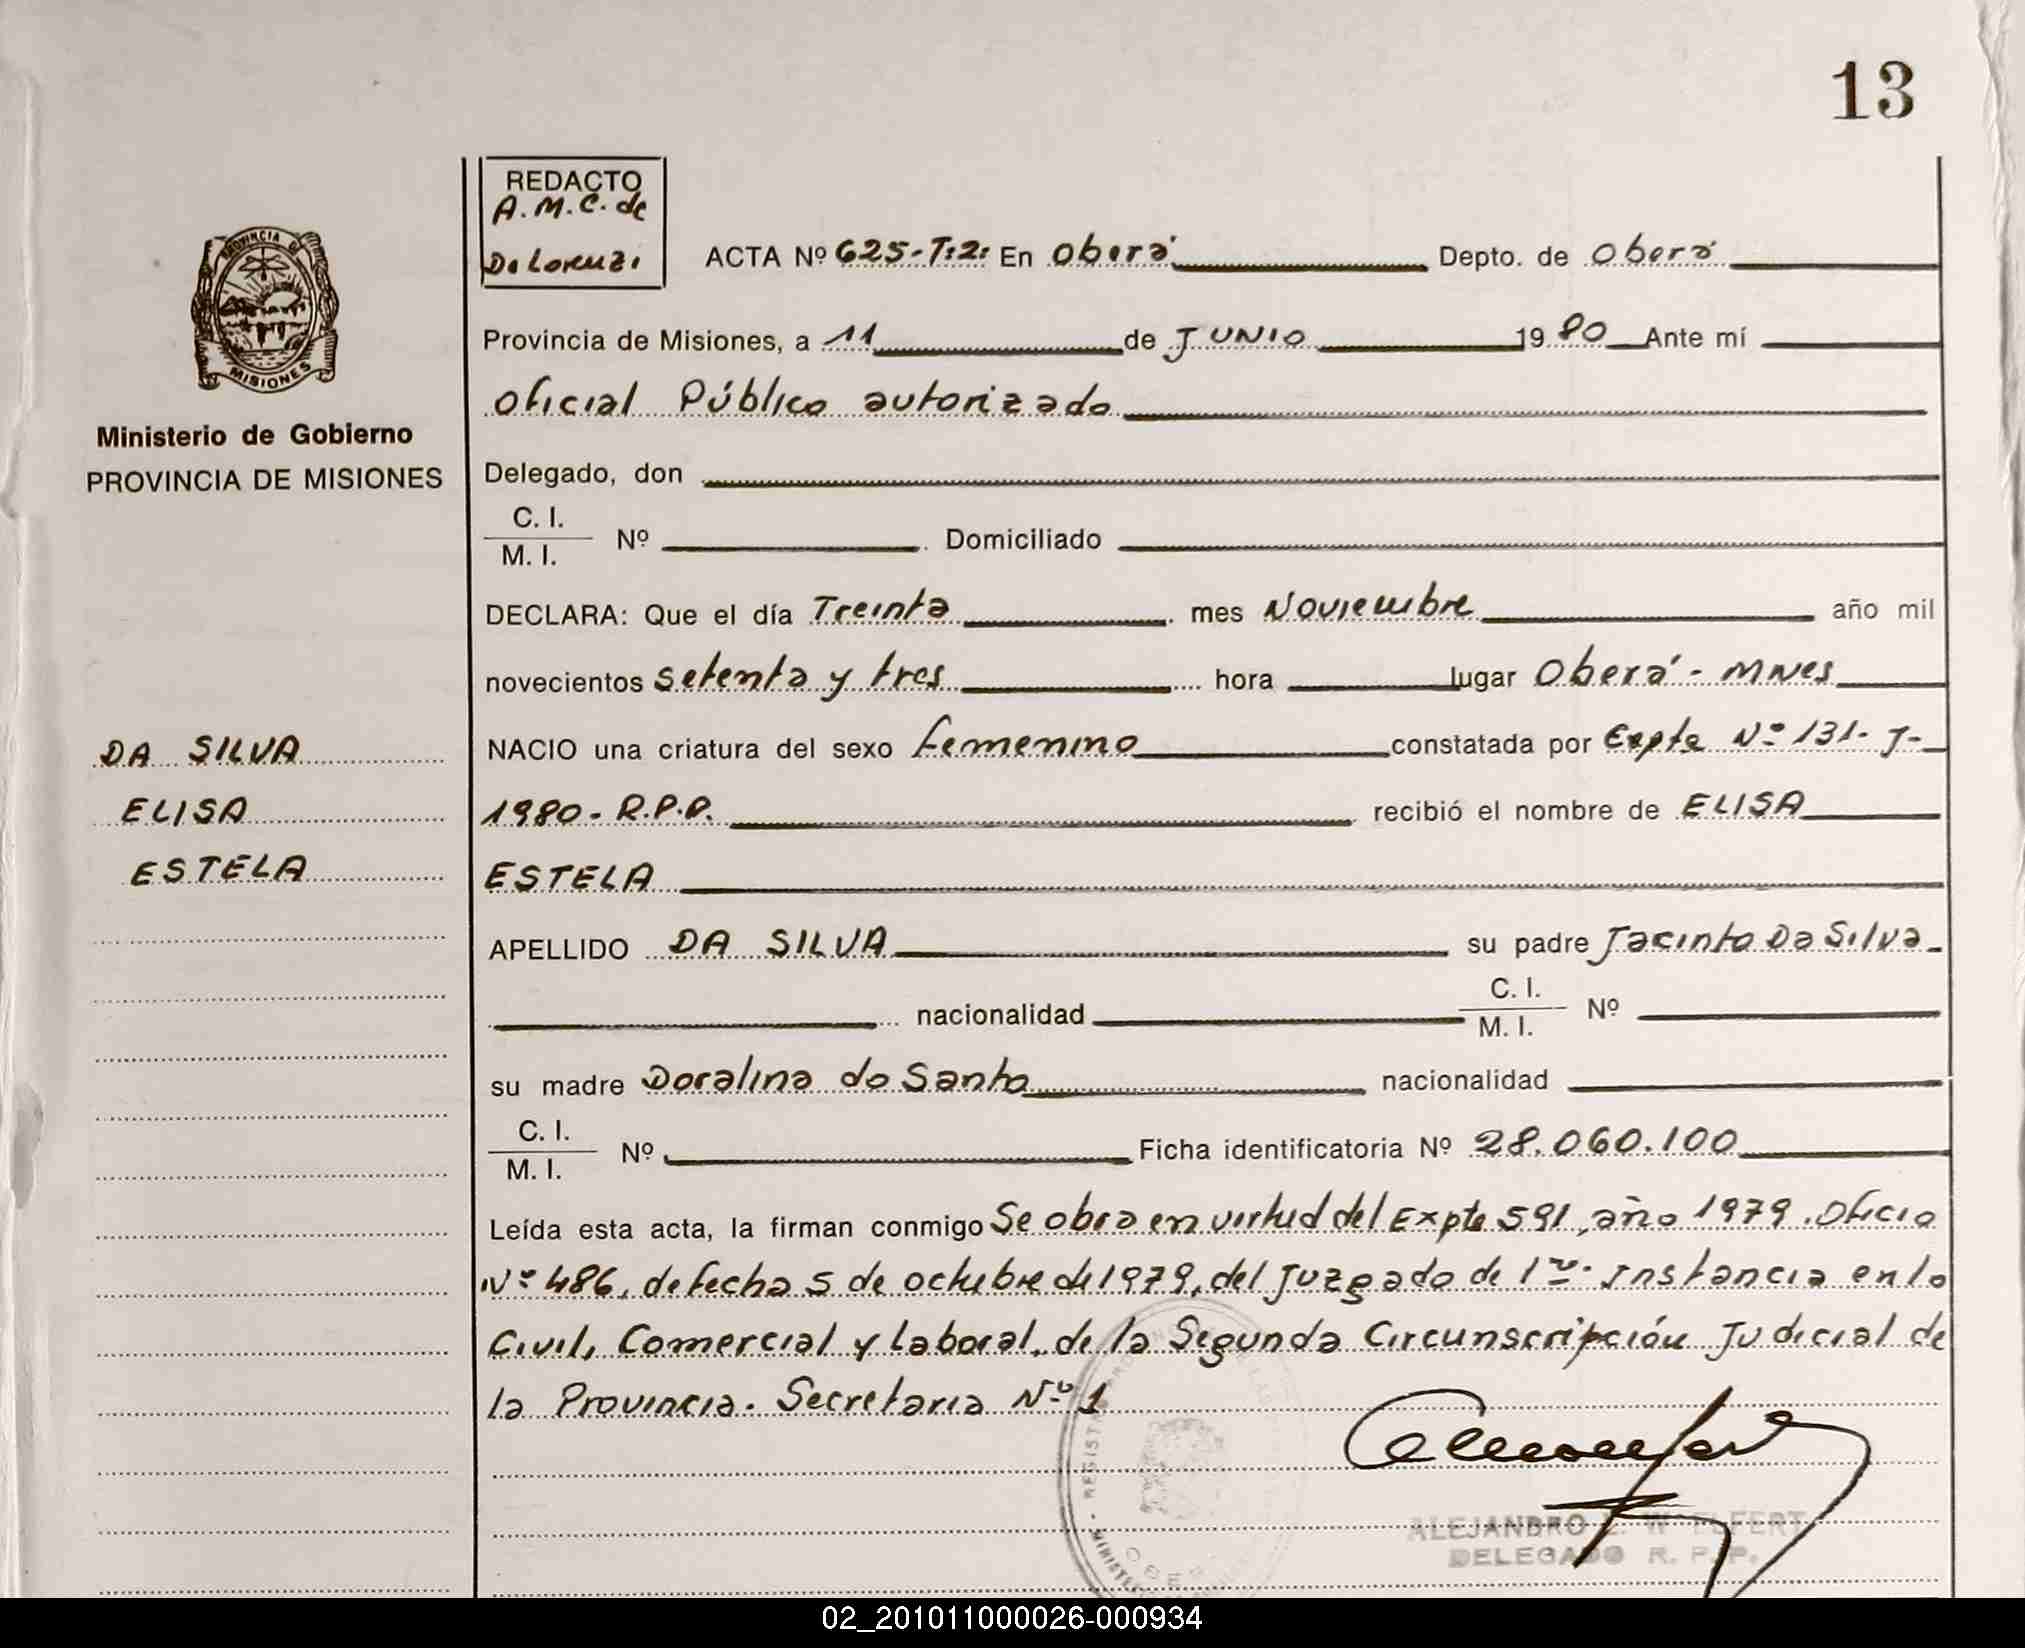 13
REDACTO
A.M.C. de
De Lorenzi
ACTA Nº 625-T:2: En Oberá Depto. de Oberá
Provincia de Misiones, a 11 de JUNIO 1980 Ante mí
Oficial Público autorizado
PROVINCIA DE
MISIONES
Ministerio de Gobierno
PROVINCIA DE MISIONES
Delegado, don
C. I.
M. I. Nº Domiciliado
DECLARA: Que el día Treinta mes Noviembre año mil
novecientos setenta y tres hora lugar Oberá - MNES
DA SILVA
ELISA
ESTELA
NACIO una criatura del sexo femenino constatada por Expte Nº 131- J-
1980- R.P.P. recibió el nombre de ELISA
ESTELA
APELLIDO DA SILVA su padre Jacinto Da Silva
nacionalidad C. I.
M. I. Nº
su madre Doralina do Santo nacionalidad
C. I.
M. I. Nº Ficha identificatoria Nº 28.060.100
Leída esta acta, la firman conmigo Se obra en virtud del Expte 591, año 1979. Oficio
Nº 486, de fecha 5 de octubre de 1979, del Juzgado de 1ra. Instancia en lo
Civil, Comercial y Laboral, de la Segunda Circunscripción Judicial de
la Provincia. Secretaria Nº 1
ALEJANDRO
DELEGADO R. P. P.
02_201011000026-000934